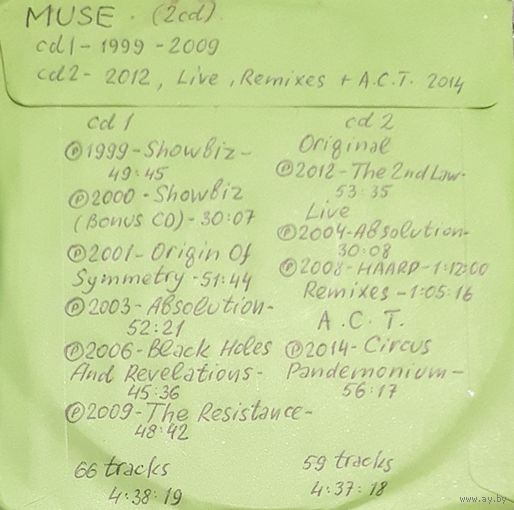 MUSE. (2cd)
cd1 - 1999 - 2009
cd2 - 2012, Live, Remixes + A.C.T. 2014
cd 1
℗1999 - Showbiz -
49:45
℗2000 - Showbiz
(Bonus CD) - 30:07
℗2001 - Origin Of
Symmetry - 51:44
℗2003 - Absolution -
52:21
℗2006 - Black Holes
And Revelations -
45:36
℗2009 - The Resistance -
48:42
66 tracks
4:38:19
cd 2
Original
℗2012 - The 2nd Law -
53:35
Live
℗2004 - Absolution -
30:08
℗2008 - HAARP - 1:12:00
Remixes - 1:05:16
A.C.T.
℗2014 - Circus
Pandemonium -
56:17
59 tracks
4:37:18
www.ay.by